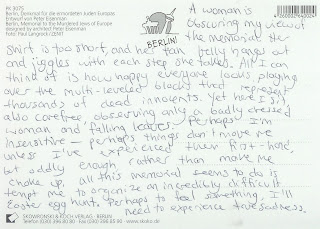 PK 9075
Berlin, Denkmal für die ermordeten Juden Europas
Entwurf von Peter Eisenman
Berlin, Memorial to the Murdered Jews of Europe
designed by architect Peter Eisenman
Foto: Paul Langrock/ZENIT
BERLIN!
A woman is
obscuring my view of
the memorial. She
shirt is too short, and her tan belly hangs out
and jiggles with each step she takes. All I can
think of is how happy everyone looks, playing
over the multi-leveled blocks that represent
thousands of dead innocents. Yet here I sit,
also carefree, observing only a badly dressed
woman and falling leaves. Perhaps I'm
insensitive – perhaps things don't move me
unless I've experienced them first-hand,
but oddly enough rather than move me
choke up, all this memorial seems to do is
tempt me to organize an incredibly difficult
Easter egg hunt. Perhaps to feel something, I'll
need to experience true sadness.
SKOWRONSKI & KOCH VERLAG · BERLIN